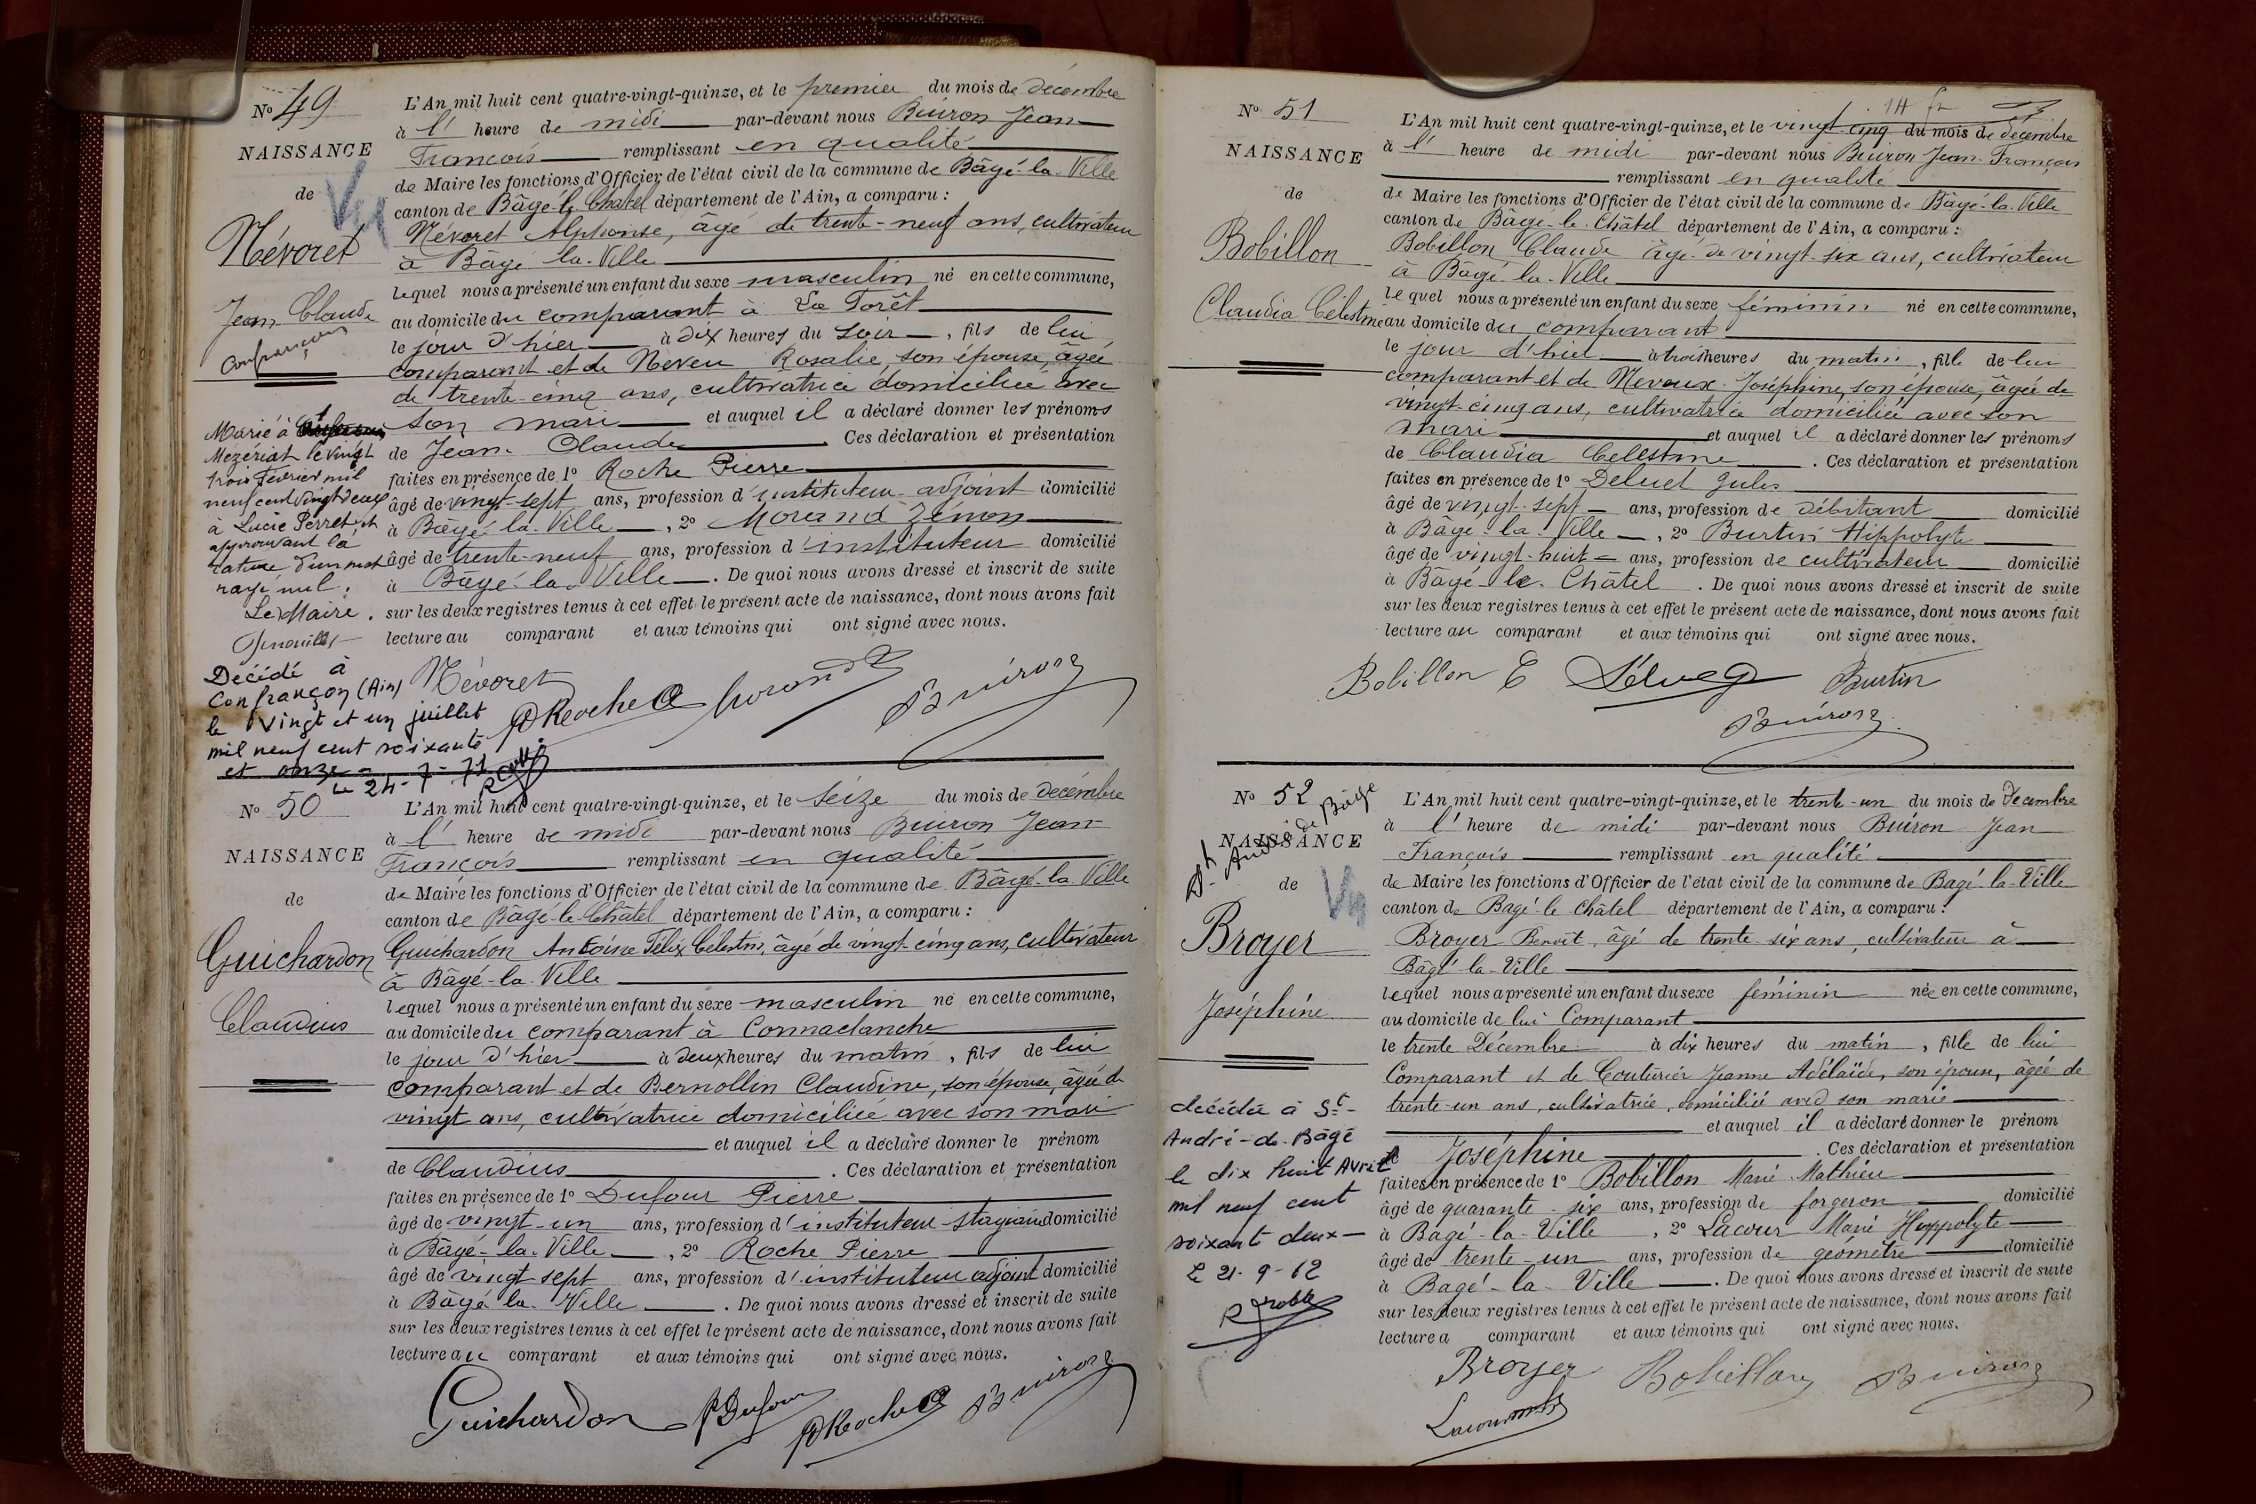 No 49
NAISSANCE
de
Névoret
Jean Claude
Confrançon
Marié à
Mézériat le vingt
trois février mil
neuf cent vingt deux
à Lucie Perret et
approuvant la
rature d'un mot
rayé nul.
Le Maire.
Décédé à
Confrançon (Ain)
le vingt et un juillet
mil neuf cent soixante
et onze -
Le 24-7-71
L'An mil huit cent quatre-vingt-quinze, et le premier du mois de décembre
à l' heure de midi par-devant nous Buiron Jean
François remplissant en qualité
de Maire les fonctions d'Officier de l'état civil de la commune de Bâgé-la-Ville
canton de Bâgé-le-Châtel département de l'Ain, a comparu :
Névoret Alphonse, âgé de trente-neuf ans, cultivateur
à Bâgé-la-Ville
lequel nous a présenté un enfant du sexe masculin né en cette commune,
au domicile du comparant à La Forêt
le jour d'hier à dix heures du soir, fils de lui
comparant et de Neveu Rosalie, son épouse, âgée
de trente-cinq ans, cultivatrice domiciliée avec
son mari et auquel il a déclaré donner les prénoms
de Jean Claude Ces déclaration et présentation
faites en présence de 1o Roche Pierre
âgé de vingt-sept ans, profession d'instituteur-adjoint domicilié
à Bâgé-la-Ville, 2o Morand Zénon
âgé de trente-neuf ans, profession d'instituteur domicilié
à Bâgé-la-Ville. De quoi nous avons dressé et inscrit de suite
sur les deux registres tenus à cet effet le présent acte de naissance, dont nous avons fait
lecture au comparant et aux témoins qui ont signé avec nous.
Névoret
P Roche Morand Buiron
No 50
NAISSANCE
de
Guichardon
Claudius
L'An mil huit cent quatre-vingt-quinze, et le seize du mois de décembre
à l' heure de midi par-devant nous Buiron Jean
François remplissant en qualité
de Maire les fonctions d'Officier de l'état civil de la commune de Bâgé-la-Ville
canton de Bâgé-le-Châtel département de l'Ain, a comparu :
Guichardon Antoine Félix Célestin, âgé de vingt-cinq ans, cultivateur
à Bâgé-la-Ville
lequel nous a présenté un enfant du sexe masculin né en cette commune,
au domicile du comparant à Connaclanche
le jour d'hier à deux heures du matin, fils de lui
comparant et de Bernollin Claudine, son épouse, âgée de
vingt ans, cultivatrice domiciliée avec son mari
et auquel il a déclaré donner le prénom
de Claudius. Ces déclaration et présentation
faites en présence de 1o Dufour Pierre
âgé de vingt-un ans, profession d'instituteur stagiaire domicilié
à Bâgé-la-Ville, 2o Roche Pierre
âgé de vingt sept ans, profession d'instituteur adjoint domicilié
à Bâgé-la-Ville. De quoi nous avons dressé et inscrit de suite
sur les deux registres tenus à cet effet le présent acte de naissance, dont nous avons fait
lecture au comparant et aux témoins qui ont signé avec nous.
Guichardon P Dufour P Roche Buiron
No 51
NAISSANCE
de
Bobillon
Claudia Célestine
L'An mil huit cent quatre-vingt-quinze, et le vingt-cinq du mois de décembre
à l' heure de midi par-devant nous Buiron Jean-François
remplissant en qualité
de Maire les fonctions d'Officier de l'état civil de la commune de Bâgé-la-Ville
canton de Bâgé-le-Châtel département de l'Ain, a comparu :
Bobillon Claude âgé de vingt-six ans, cultivateur
à Bâgé-la-Ville
lequel nous a présenté un enfant du sexe féminin né en cette commune,
au domicile du comparant
le jour d'hier à trois heures du matin, fille de lui
comparant et de Neveux Joséphine, son épouse, âgée de
vingt-cinq ans, cultivatrice domiciliée avec son
mari et auquel il a déclaré donner les prénoms
de Claudia Célestine. Ces déclaration et présentation
faites en présence de 1o Deluet Jules
âgé de vingt-sept ans, profession de débitant domicilié
à Bâgé-la-Ville, 2o Burtin Hippolyte
âgé de vingt-huit ans, profession de cultivateur domicilié
à Bâgé-le-Châtel. De quoi nous avons dressé et inscrit de suite
sur les deux registres tenus à cet effet le présent acte de naissance, dont nous avons fait
lecture au comparant et aux témoins qui ont signé avec nous.
Bobillon C Burtin
Buiron
No 52
NAISSANCE
de
St André de Bâgé
Broyer
Joséphine
décédée à St-
André-de-Bâgé
le dix huit Avril
mil neuf cent
soixante deux
Le 21-9-62
L'An mil huit cent quatre-vingt-quinze, et le trente-un du mois de Decembre
à l' heure de midi par-devant nous Buiron Jean
François remplissant en qualité
de Maire les fonctions d'Officier de l'état civil de la commune de Bagé-la-Ville
canton de Bagé-le châtel département de l'Ain, a comparu :
Broyer Benoît, âgé de trente-six ans, cultivateur à
Bâgé-la-Ville
lequel nous a présenté un enfant du sexe féminin née en cette commune,
au domicile de lui Comparant
le trente Décembre à dix heures du matin, fille de lui
Comparant et de Couturier Jeanne Adélaïde, son épouse, âgée de
trente-un ans, cultivatrice, domiciliée avec son marié
et auquel il a déclaré donner le prénom
de Joséphine. Ces déclaration et présentation
faites en présence de 1o Bobillon Marie Mathieu
âgé de quarante-six ans, profession de forgeron domicilié
à Bagé-la-Ville, 2o Lacour Marie Hyppolyte
âgé de trente-un ans, profession de géomètre domicilié
à Bagé-la-Ville. De quoi nous avons dressé et inscrit de suite
sur les deux registres tenus à cet effet le présent acte de naissance, dont nous avons fait
lecture a comparant et aux témoins qui ont signé avec nous.
Broyer Bobillon Buiron